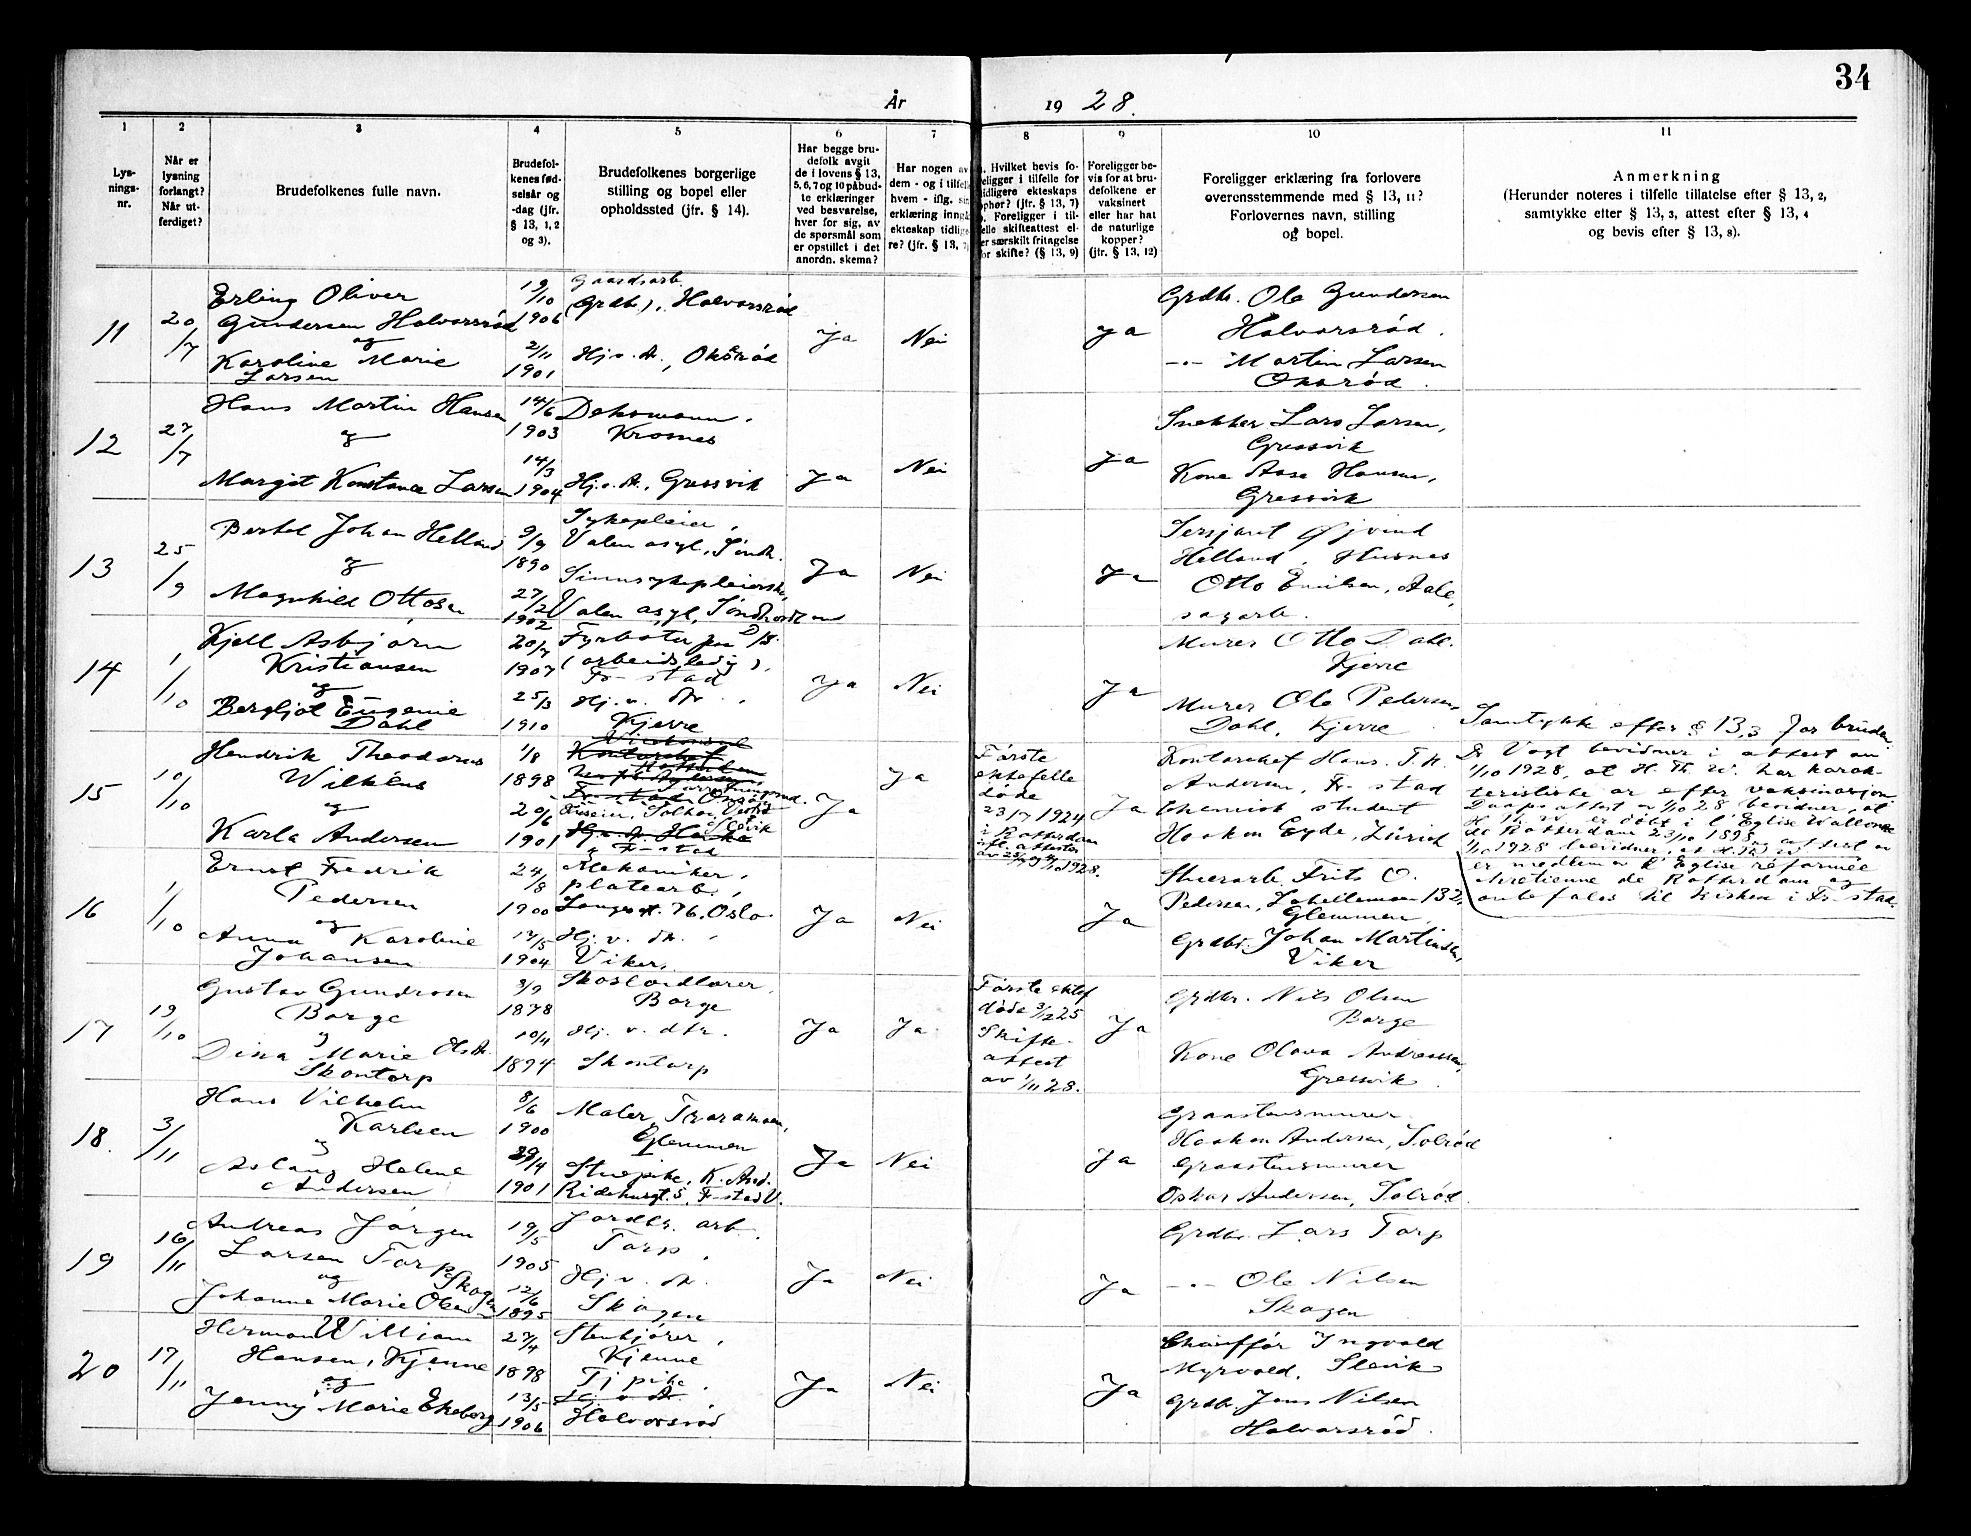 34
År 1928.
1 2 3 4 5 6 7 8 9 10 11
Lys-
nings-
nr.
Når er
lysning
forlangt?
Når ut-
ferdiget?
Brudefolkenes fulle navn.
Brudefol-
kenes fød-
selsår og
-dag (jfr.
§ 13, 1, 2
og 3).
Brudefolkenes borgerlige
stilling og bopel eller
opholdssted (jfr. § 14).
Har begge bru-
defolk avgit
de i lovens § 13,
5, 6, 7 og 10 påbud-
te erklæringer
ved besvarelse,
hver for sig, av
de spørsmål som
er opstillet i det
anordn. skema?
Har nogen av
dem - og i tilfelle
hvem - iflg. sin
erklæring inngå
ekteskap tidlige-
re? (jfr. § 13,
Hvilket bevis fo-
religger i tilfelle for
tidligere ekteskaps
ophør? (jfr. § 13, 7)
Foreligger i til-
felle skifteattest el-
er særskilt fritagelse
for skifte? (§ 13, 9)
Foreligger be-
vis for at bru-
defolkene er
vaksinert
eller har hat
de naturlige
kopper?
(jfr. § 13, 12)
Foreligger erklæring fra forlovere
overensstemmende med § 13, 11?
Forlovernes navn, stilling
og bopel.
Anmerkning
(Herunder noteres i tilfelle tillatelse efter § 13, 2,
samtykke efter § 13, 3, attest efter § 13, 4
og bevis efter § 13, 8).
11
20/7
Erling Oliver
Gundersen Halvorsrød
og
Karoline Marie
Larsen
19/10
1906
2/11
1901
Gaardsarb.
(Grdbr.), Halvorsrød
Hj. v. dt., Oksrød
Ja
Nei
Ja
Grdbr. Ole Gundersen
Halvorsrød.
-"- Martin Larsen
Oksrød.
12
27/7
Hans Martin Hansen
og
Margit Konstance Larsen
14/6
1903
14/3
1904
Deksmann.
Krosnes
Hj. v. dt., Gressvik
Ja
Nei
Ja
Snekker Lars Larsen,
Gressvik
Kone Aase Hansen,
Gressvik
13
25/9
Bertel Johan Helland
og
Magnhild Ottosen
9/9
1890
27/2
1902
Sykepleier,
Valen asyl, Søndh.
Sinnsykepleierske,
Valen asyl, Søndhordland
Ja
Nei
Ja
Sersjant Øjvind
Helland, Husnes
Otto Emilsen, Aale,
sagarb.
14
1/10
Kjell Asbjørn
Kristiansen
og
Bergljot Eugenie
Dahl
20/7
1907
25/3
1910
Fyrbøter paa D/S.
(arbeidsledig),
Fr-stad
Hj. v. dt.,
Kjerre
Ja
Nei
Ja
Murer Otto Dahl.
Kjerre
Murer Ole Pedersen
Dahl, Kjerre
15
10/10
Hendrik Theodorus
Wilkens
og
Karla Andersen
1/8
1898
20/6
1901
Kontorchef
Fr-stad
Slevik
Fr-stad
Ja
Ja
Første
ektefelle
døde
23/7 1924
i Rotterdam
ifl. attester
1928.
Ja
Kontorchef Hans. T. H.
Andersen, Fr-stad
Chemisk student
Haakon Eyde, Zürich
Samtykke efter § 13,3 for bruden
Dr Vogt bevidner i attest av
1/10 1928, at H. Th. W. har karak-
teristiske ar efter vaksinasjon
Daapsattest av 1/10 28 bevidner, at
H. Th. W. er døbt i l'Eglise Wallonne
de Rotterdam 23/10 1898, og attest av
1/10 1928 bevidner, at H. Th. W.
er medlem av l'Eglise réformée
chrétienne de Rotterdam og
anbefales til kirken i Fr-stad.
16
1/10
Ernst Fredrik
Pedersen
og
Anna Karoline
Johansen
24/8
1900
12/5
1904
Mekaniker,
platearb.,
76, Oslo
Hj. v. dt.,
Viker,
Ja
Nei
Ja
Stuerarb. Frits O.
Pedersen, 132,
Glemmen
Grdbr. Johan Martinsen,
Viker
17
19/10
Gustav Gundrosen
Borge
og
Dina Marie Olsdt.
Skontorp
3/9
1878
10/4
1894
Skoslandlærer,
Borge
Hj. v. dtr.
Skontorp
Ja
Ja
Første ektef
døde 3/12 25
Skifte-
attest
av 1/11 28.
Ja
Grdbr. Nils Olsen
Borge
Kone Olava Andreassen,
Gressvik.
18.
3/11
Hans Vilhelm
Karlsen
og
Aslaug Helene
Andersen
8/6
1900
29/4
1901
Maler, Traramoen,
Glemmen
Stuepike, K. And.
Ridehusgt. 5, Fr-stad V.
Ja
Nei
Ja
Graastensmurer
Haakon Andersen, Solrød
Graastensmurer
Oskar Andersen, Solrød.
19
16/11
Andreas Jørgen
Larsen Torp
og
Johanne Marie Olsen Skogen
19/5
1905
12/6
1895
Jordbr. arb.
Torp,
Hj. v. dt.
Skogen
Ja
Nei
Ja
Grdbr. Lars Torp
-"- Ole Nilsen
Skogen
20
17/11
Herman William
Hansen, Kjenne
og
Jenny Marie Ekeberg
27/4
1898
13/5
1906
Stenkjører,
Kjenne
Tj pike,
Hj v dt.
Halvorsrød
Ja
Nei
Ja
Chauffør Ingvald
Myrvold, Slevik
Grdbr. Jens Nilsen
Halvorsrød.